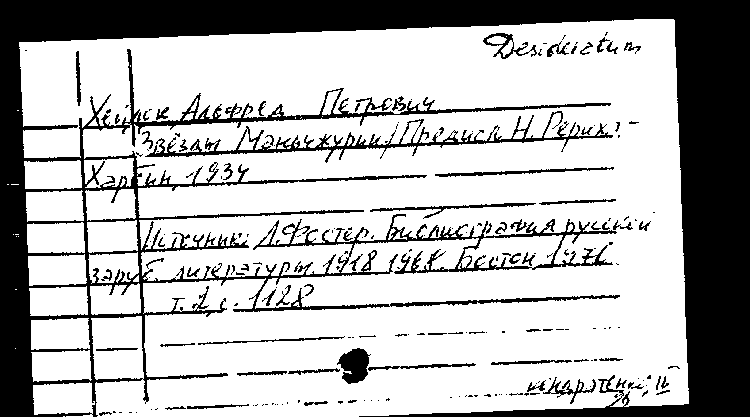 Desideratum
Хейдок Альфред Петрович
Звёзды Маньчжурии / Предисл. Н. Рериха. -
Харбин, 1934
Источник: Л. Фостер. Библиография русской
заруб. литературы. 1918 1968. Бостон, 1971
т. 2, с. 1128